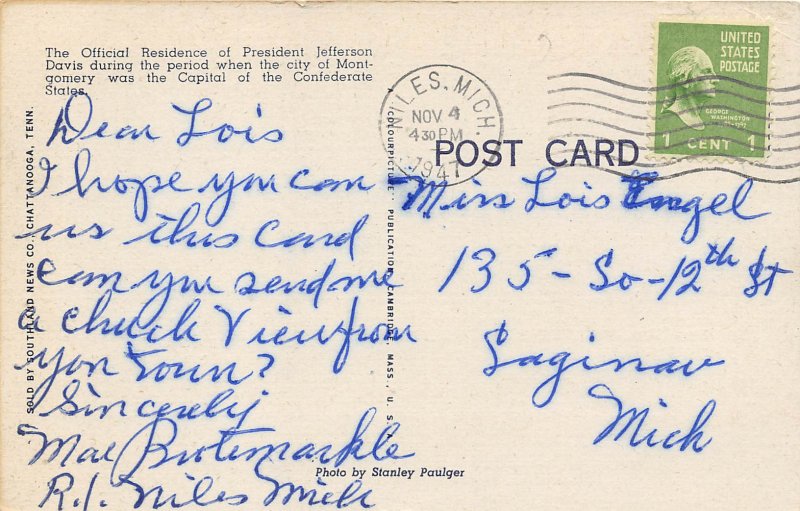 The Official Residence of President Jefferson
Davis during the period when the city of Mont-
gomery was the Capital of the Confederate
States.
Dear Lois
I hope you can
us this card
can you send me
a chuch View from
yon town?
Sincerely
Mae Brotemarkle
R.1. Niles Mich
SOLD BY SOUTHLAND NEWS CO., CHATTANOOGA, TENN.
COLOURPICTURE PUBLICATION, CAMBRIDGE, MASS., U. S.
Photo by Stanley Paulger
NILES, MICH.
NOV 4
4 30 PM
1947
POST CARD
UNITED
STATES
POSTAGE
GEORGE
WASHINGTON
1 CENT 1
Miss Lois Engel
135 - So - 12th St
Saginaw
Mich